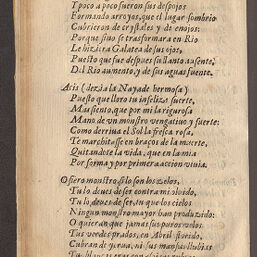 Y poco a poco fueron sus despojos
Formando arroyos, que el lugar sombrio
Cubrieron de crystales y de enojos:
Porque sino se trasformara en Rio
Le hiziera Galatea de sus ojos,
Puesto que fue despues su llanto ausente
Del Rio aumento, y de sus aguas fuente.
Acis (dezia la Nayade hermosa)
Puesto que lloro tu infelize suerte,
Mas siento, que por mi la rigurosa
Mano de un monstro vengativo y fuerte:
Como derriua el Sol la fresca rosa,
Te marchitasse en braços de la muerte,
Quitandote la vida, que en la mia
Por forma y por primera accion viuia.
O fiero monstro, solo son los zelos,
Tu lo deues de ser contra mi oluido,
Tu lo deues de ser, en que los cielos
Ningun monstro mayor han produzido:
O quieran que jamas sus puros velos,
Tus verdes prados, en Abril florido,
Cubran de yerua, ni sus mansas llubias